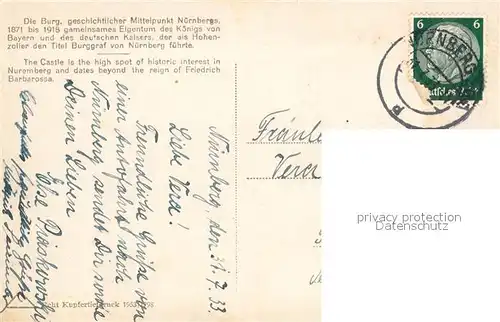 Die Burg, geschichtlicher Mittelpunkt Nürnbergs,
1871 bis 1918 gemeinsames Eigentum des Königs von
Bayern und des deutschen Kaisers, der als Hohen-
zoller den Titel Burggraf von Nürnberg führte.
The Castle is the high spot of historic interest in
Nuremberg and dates beyond the reign of Friedrich
Barbarossa.
Nürnberg, den 31.7.33
Liebe Vera!
Freundliche Grüße von
einer Autofahrt nach
Nürnberg sendet Dir sowie
Deinen Lieben
Else
Echt Kupfertiefdruck
Fräulein
Vera
6 6
NÜRNBERG
privacy protection
Datenschutz